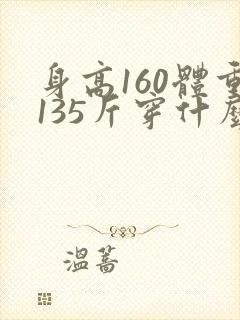 身高160體重
135斤穿什麼
溫蒿